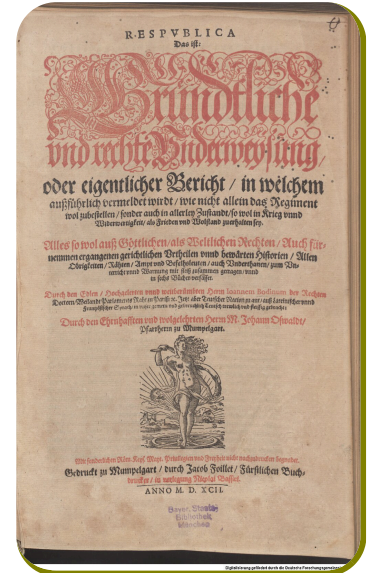 RESPVBLICA
Das ist:
Gründtliche
vnd rechte Vnderweysung/
oder eigentlicher Bericht / in welchem
außführlich vermeldet wirdt / wie nicht allein das Regiment
wol zubestellen / sonder auch in allerley Zustandt / so wol in Krieg vnnd
Widerwertigkeit / als Frieden vnd Wolstand zuerhalten sey.
Alles so wol auß Göttlichen / als Weltlichen Rechten / Auch für-
nemmen ergangenen gerichtlichen Vrtheilen vnnd bewärten Historien / Allen
Obrigkeiten / Räthen / Ampt vnd Befelchsleuten / auch Vnderthanen / zum Vn-
terricht vnnd Warnung mit fleiß zusammen getragen / vnnd
in sechs Bücher verfasset.
Durch den Edlen / Hochgelerten vnnd weitberümbten Herrn Ioannem Bodinum der Rechten
Doctorn
Durch den Ehrnhafften vnd wolgelehrten Herrn M. Johann Oswaldt /
Pfarrherrn zu Mumpelgart.
Mit sonderlichen Röm. Keys. Mayt. Privilegien vnd Freyheit nicht nachzudrucken begnadet.
Gedruckt zu Mumpelgart / durch Jacob Foillet / Fürstlichen Buch-
drucker / in verlegung Niclas Bassei.
ANNO M. D. XCII.
Bayer. Staats-
Bibliothek
München
Digitalisierung gefördert durch die Deutsche Forschungsgemeinschaft